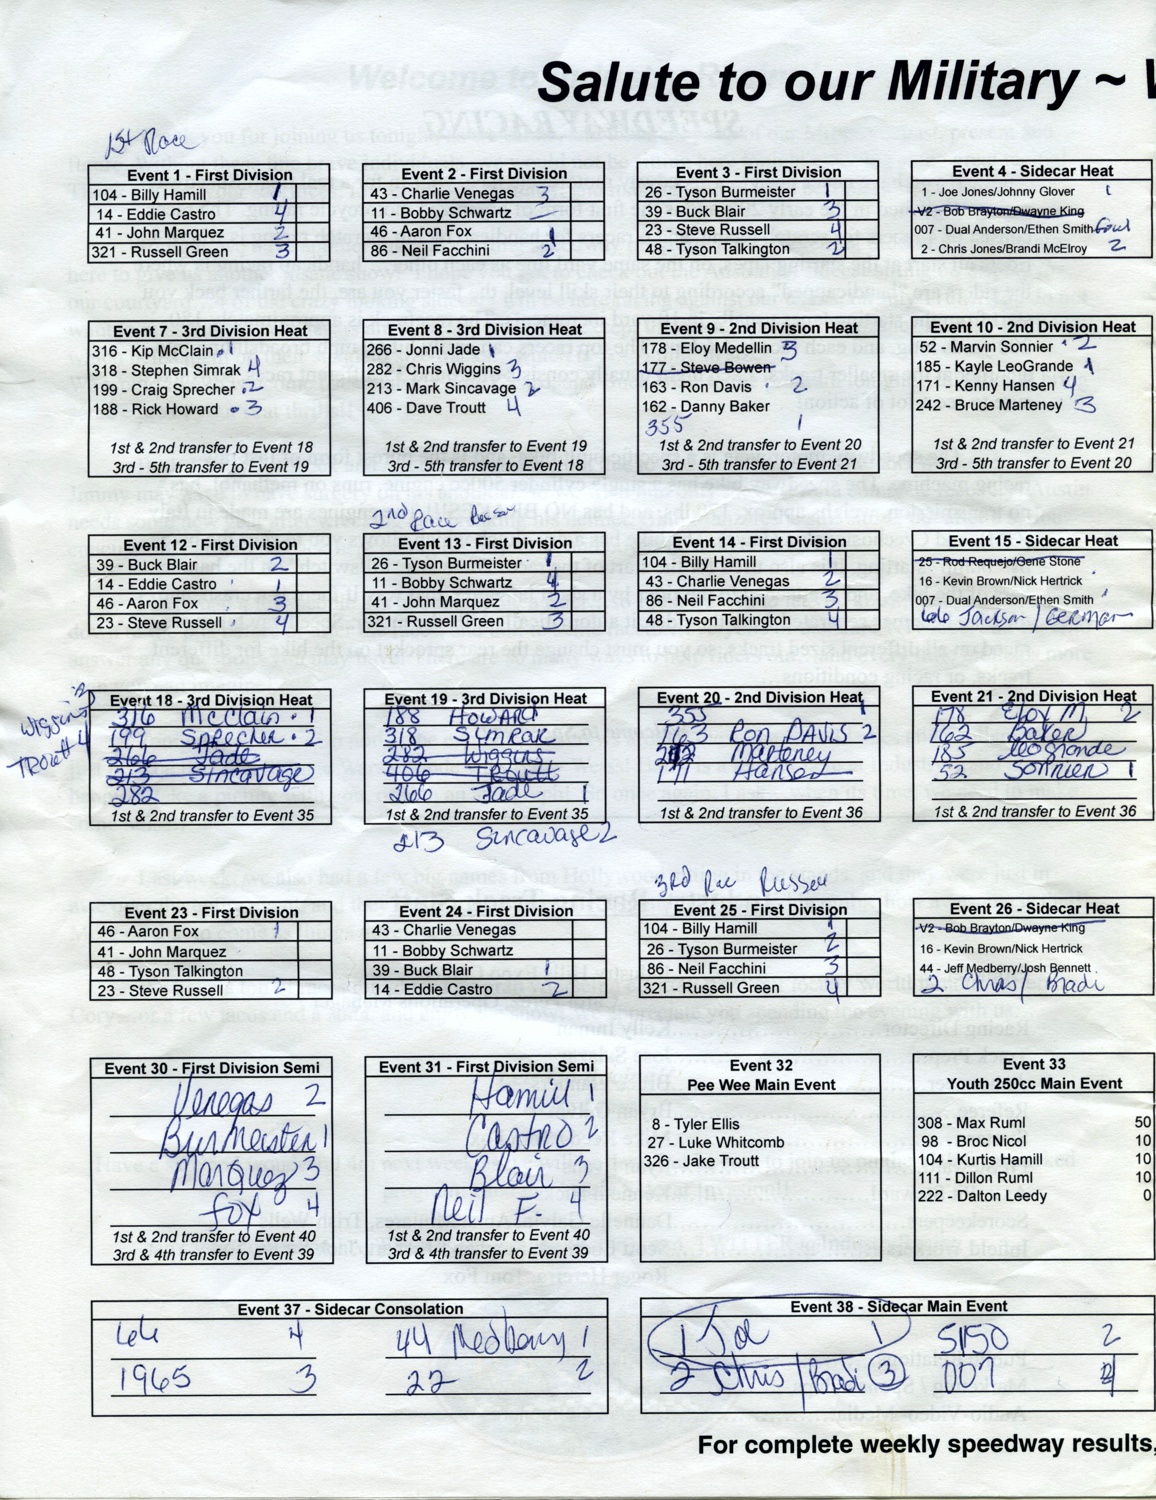 Salute to our Military ~
1st Race
Event 1 - First Division
104 - Billy Hamill 1
14 - Eddie Castro 4
41 - John Marquez 2
321 - Russell Green 3
Event 2 - First Division
43 - Charlie Venegas 3
11 - Bobby Schwartz
46 - Aaron Fox 1
86 - Neil Facchini 2
Event 3 - First Division
26 - Tyson Burmeister 1
39 - Buck Blair 3
23 - Steve Russell 4
48 - Tyson Talkington 2
Event 4 - Sidecar Heat
1 - Joe Jones/Johnny Glover 1
V2 - Bob Brayton/Dwayne King
007 - Dual Anderson/Ethen Smith
2 - Chris Jones/Brandi McElroy 2
Event 7 - 3rd Division Heat
316 - Kip McClain 1
318 - Stephen Simrak 4
199 - Craig Sprecher 2
188 - Rick Howard 3
1st & 2nd transfer to Event 18
3rd - 5th transfer to Event 19
Event 8 - 3rd Division Heat
266 - Jonni Jade 1
282 - Chris Wiggins 3
213 - Mark Sincavage 2
406 - Dave Troutt 4
1st & 2nd transfer to Event 19
3rd - 5th transfer to Event 18
Event 9 - 2nd Division Heat
178 - Eloy Medellin 3
177 - Steve Bowen
163 - Ron Davis 2
162 - Danny Baker
355 1
1st & 2nd transfer to Event 20
3rd - 5th transfer to Event 21
Event 10 - 2nd Division Heat
52 - Marvin Sonnier 2
185 - Kayle LeoGrande 1
171 - Kenny Hansen 4
242 - Bruce Marteney 3
1st & 2nd transfer to Event 21
3rd - 5th transfer to Event 20
Event 12 - First Division
39 - Buck Blair 2
14 - Eddie Castro 1
46 - Aaron Fox 3
23 - Steve Russell 4
2nd Race Russell
Event 13 - First Division
26 - Tyson Burmeister 1
11 - Bobby Schwartz 4
41 - John Marquez 2
321 - Russell Green 3
Event 14 - First Division
104 - Billy Hamill 1
43 - Charlie Venegas 2
86 - Neil Facchini 3
48 - Tyson Talkington 4
Event 15 - Sidecar Heat
25 - Rod Requejo/Gene Stone
16 - Kevin Brown/Nick Hertrick
007 - Dual Anderson/Ethen Smith
66 Jackson/German
Event 18 - 3rd Division Heat
316 McClain 1
199 Sprecher 2
266 Jade
213 Sincavage
282
Wiggins 3
Troutt 4
1st & 2nd transfer to Event 35
Event 19 - 3rd Division Heat
188 Howard
318 Simrak
282 Wiggins
406 Troutt
266 Jade 1
1st & 2nd transfer to Event 35
213 Sincavage 2
Event 20 - 2nd Division Heat
355 1
163 Ron Davis 2
242 Marteney
171 Hansen
1st & 2nd transfer to Event 36
Event 21 - 2nd Division Heat
178 Eloy M 2
162 Baker
185 LeoGrande
52 Sonnier 1
1st & 2nd transfer to Event 36
Event 23 - First Division
46 - Aaron Fox 1
41 - John Marquez
48 - Tyson Talkington
23 - Steve Russell 2
Event 24 - First Division
43 - Charlie Venegas
11 - Bobby Schwartz
39 - Buck Blair 1
14 - Eddie Castro 2
3rd Race Russell
Event 25 - First Division
104 - Billy Hamill 1
26 - Tyson Burmeister 2
86 - Neil Facchini 3
321 - Russell Green 4
Event 26 - Sidecar Heat
V2 - Bob Brayton/Dwayne King
16 - Kevin Brown/Nick Hertrick
44 - Jeff Medberry/Josh Bennett
2 Chris/Bradi
Event 30 - First Division Semi
Venegas 2
Burmeister 1
Marquez 3
Fox 4
1st & 2nd transfer to Event 40
3rd & 4th transfer to Event 39
Event 31 - First Division Semi
Hamill 1
Castro 2
Blair 3
Neil F. 4
1st & 2nd transfer to Event 40
3rd & 4th transfer to Event 39
Event 32
Pee Wee Main Event
8 - Tyler Ellis
27 - Luke Whitcomb
326 - Jake Troutt
Event 33
Youth 250cc Main Event
308 - Max Ruml 50
98 - Broc Nicol 10
104 - Kurtis Hamill 10
111 - Dillon Ruml 10
222 - Dalton Leedy 0
Event 37 - Sidecar Consolation
66 4 44 Medberry 1
1965 3 22 2
Event 38 - Sidecar Main Event
1 Joe 1 5150 2
2 Chris/Bradi 3 007
For complete weekly speedway results,